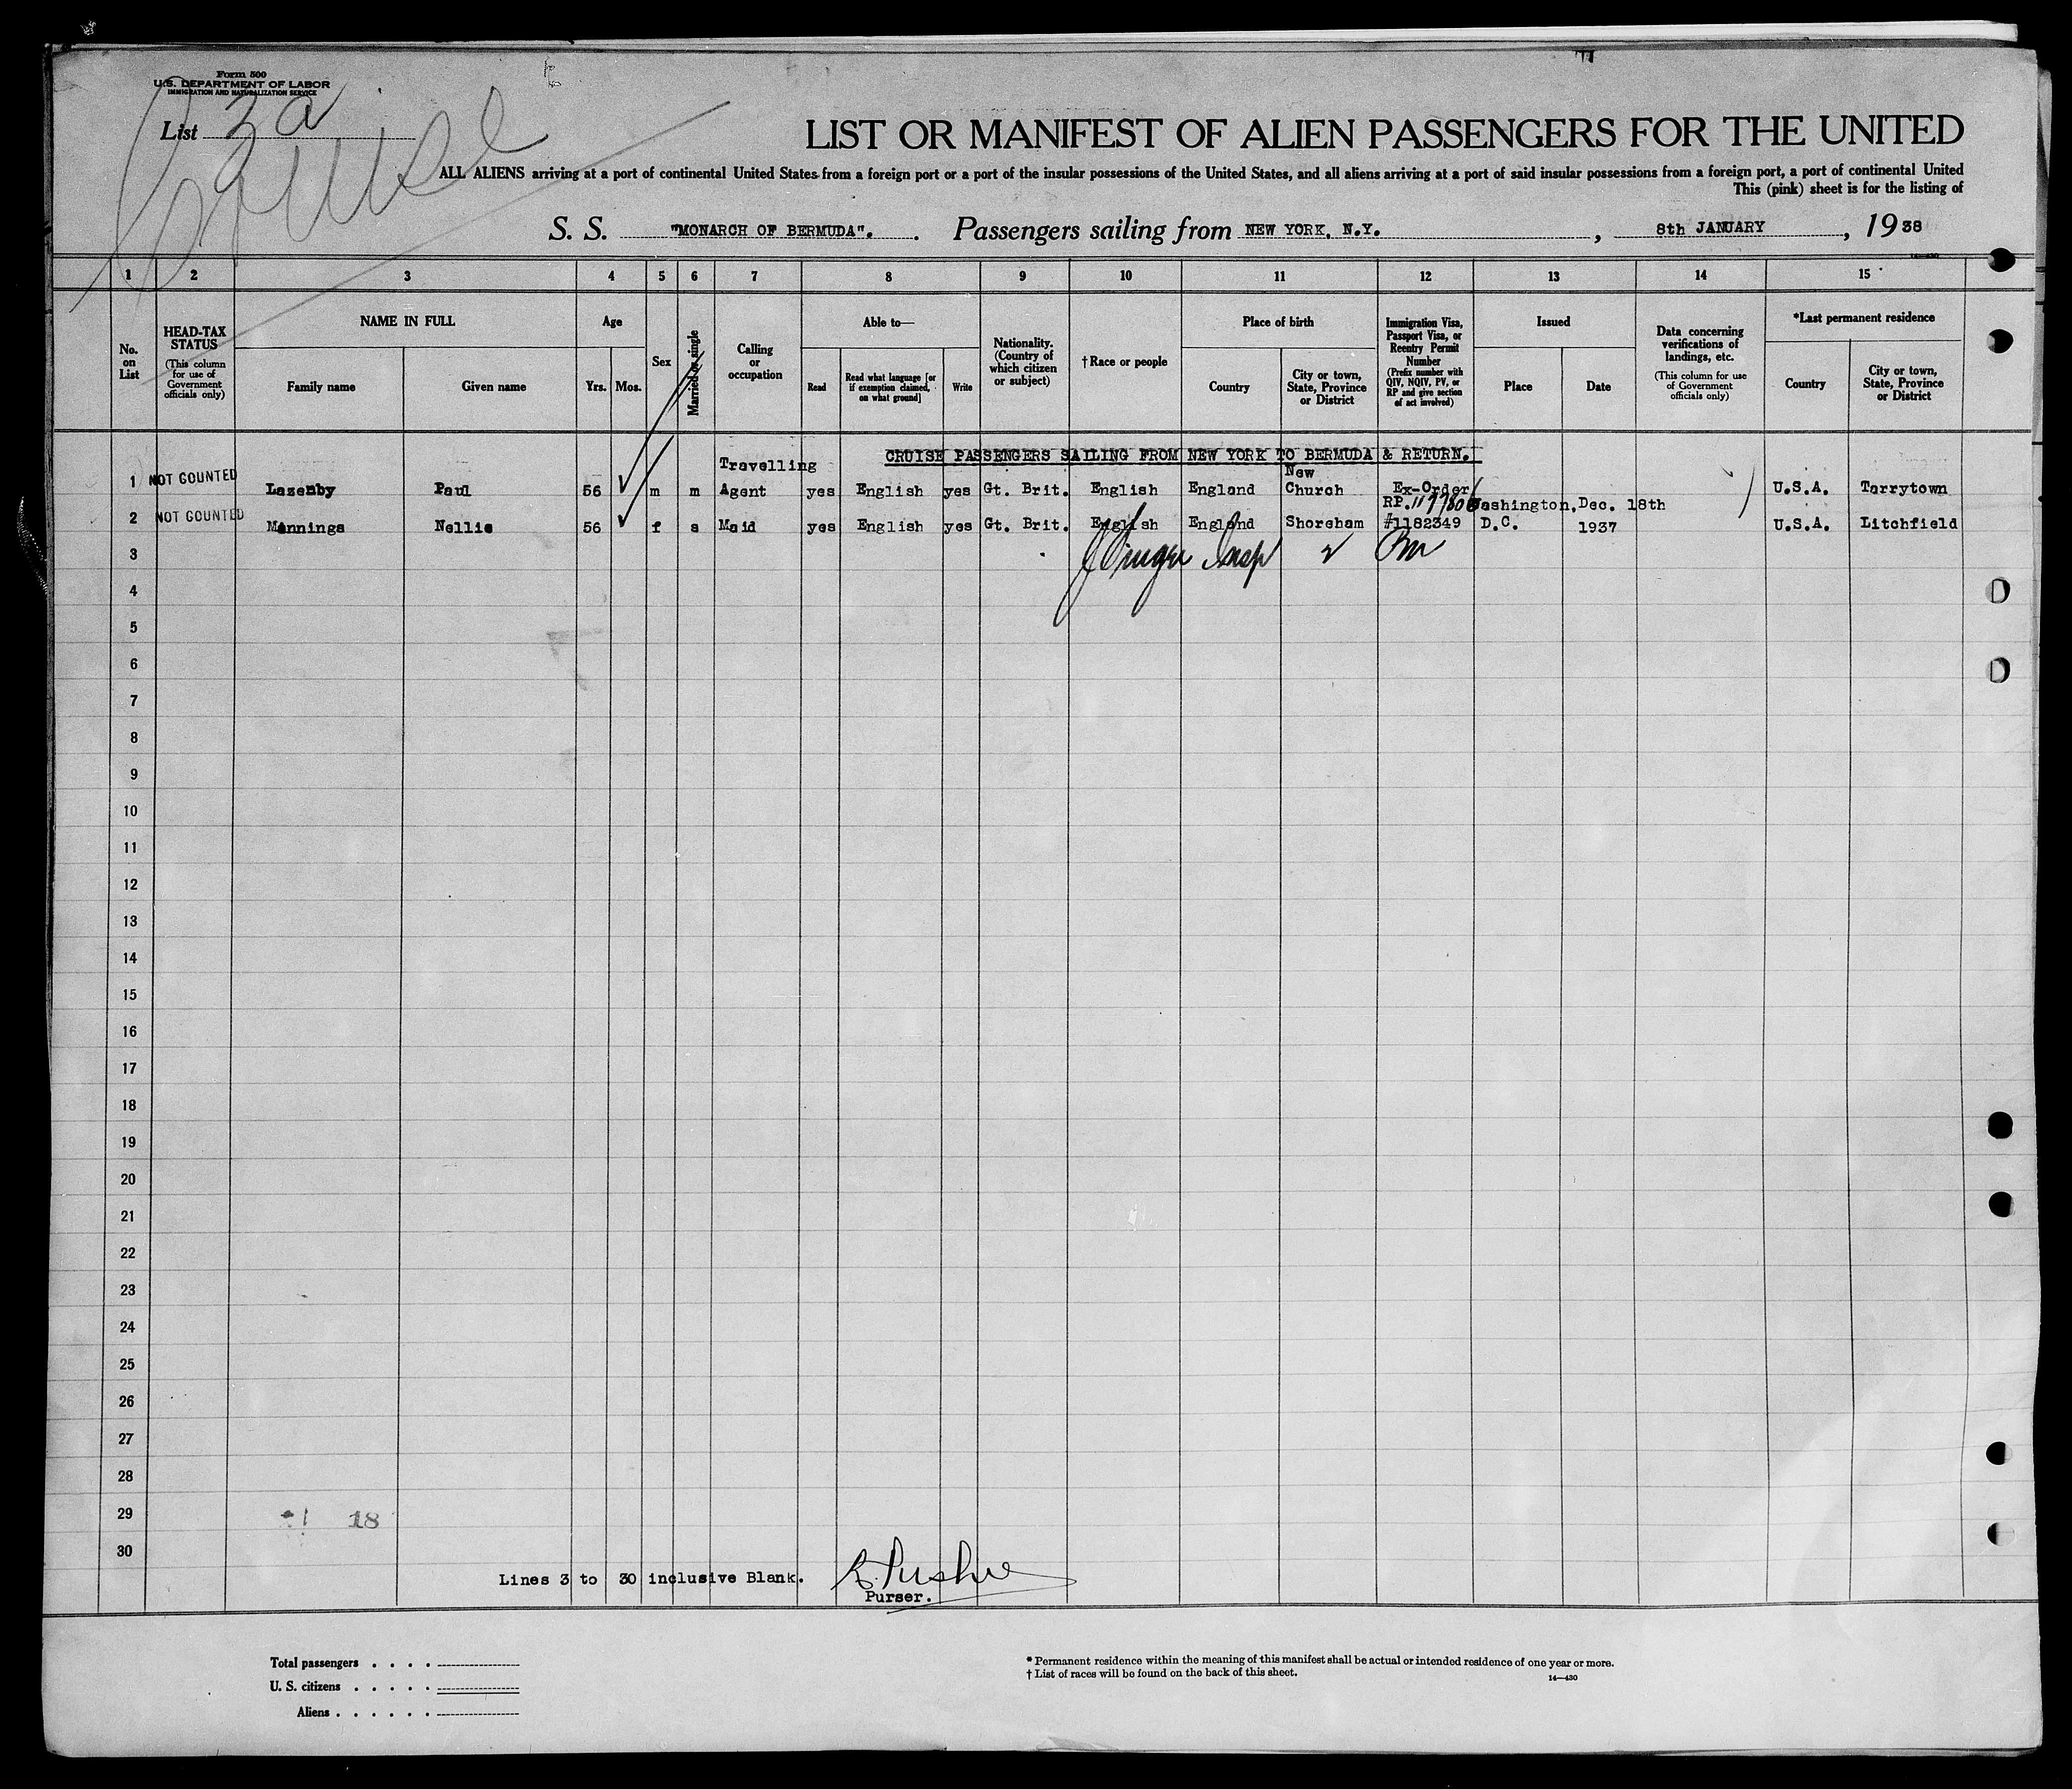 Form 500
U.S. DEPARTMENT OF LABOR
IMMIGRATION AND NATURALIZATION SERVICE
List 3a
Cruise
LIST OR MANIFEST OF ALIEN PASSENGERS FOR THE UNITED
ALL ALIENS arriving at a port of continental United States from a foreign port or a port of the insular possessions of the United States, and all aliens arriving at a port of said insular possessions from a foreign port, a port of continental United
This (pink) sheet is for the listing of
S. S. "MONARCH OF BERMUDA". Passengers sailing from NEW YORK, N.Y. , 8th JANUARY , 1938
14—430
1 2 3 4 5 6 7 8 9 10 11 12 13 14 15
No. on List
HEAD-TAX STATUS
(This column for use of Government officials only)
NAME IN FULL
Family name
Given name
Age
Yrs.
Mos.
Sex
Married or single
Calling or occupation
Able to—
Read
Read what language [or if exemption claimed, on what ground]
Write
Nationality. (Country of which citizen or subject)
†Race or people
Place of birth
Country
City or town, State, Province or District
Immigration Visa, Passport Visa, or Reentry Permit Number
(Prefix number with QIV, NQIV, PV, or RP and give section of act involved)
Issued
Place
Date
Data concerning verifications of landings, etc.
(This column for use of Government officials only)
*Last permanent residence
Country
City or town, State, Province or District
CRUISE PASSENGERS SAILING FROM NEW YORK TO BERMUDA & RETURN.
1 NOT COUNTED Lazenby Paul 56 m m Travelling Agent yes English yes Gt. Brit. English England New Church Ex-Order U.S.A. Tarrytown
2 NOT COUNTED Mannings Nellie 56 f s Maid yes English yes Gt. Brit. English England Shoreham RP. #1182349 Washington, D.C. Dec. 18th 1937 U.S.A. Litchfield
3
4
5
6
7
8
9
10
11
12
13
14
15
16
17
18
19
20
21
22
23
24
25
26
27
28
29 18
30
Lines 3 to 30 inclusive Blank.
Purser.
Total passengers . . . .
U. S. citizens . . . . .
Aliens . . . . . .
* Permanent residence within the meaning of this manifest shall be actual or intended residence of one year or more.
† List of races will be found on the back of this sheet.
14—430